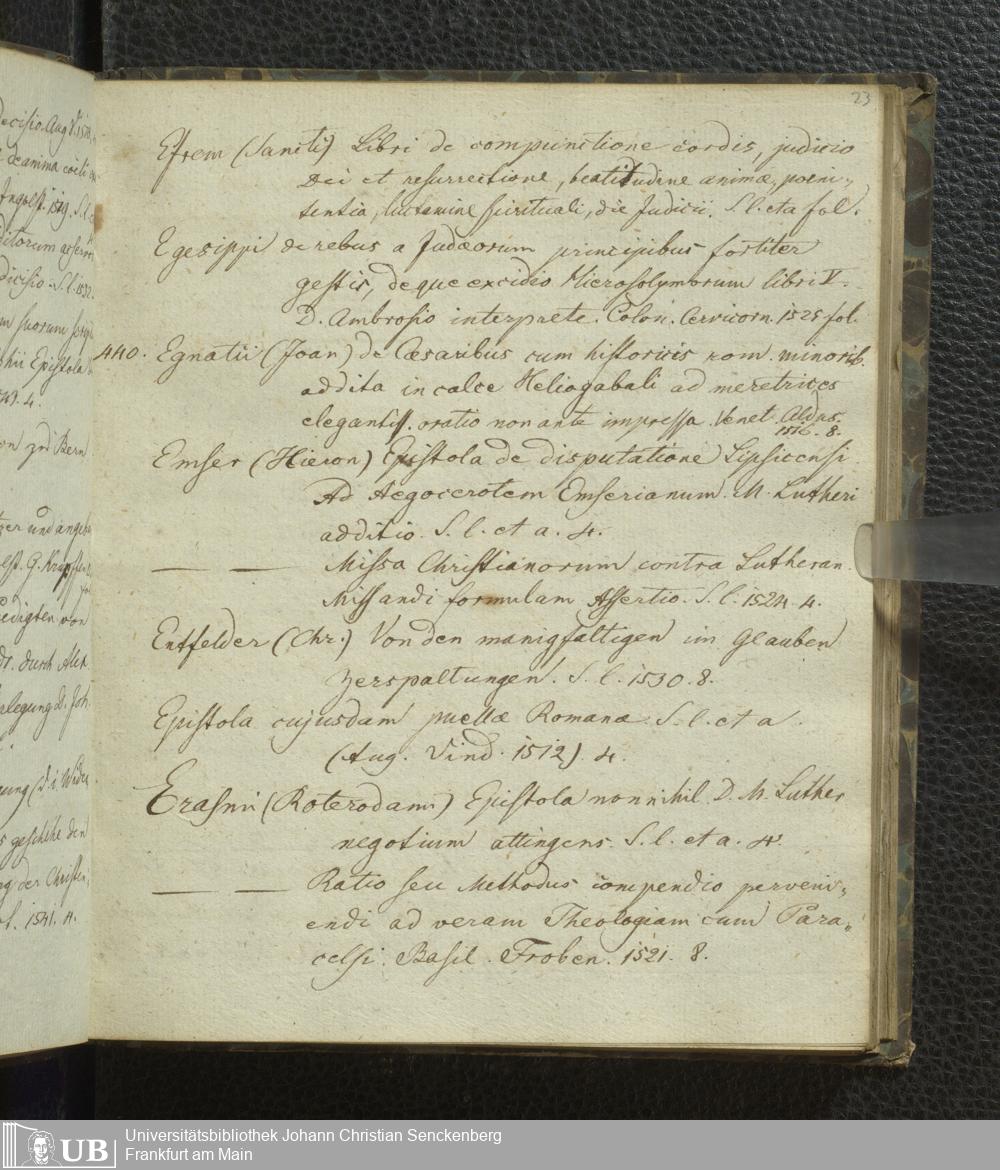 23
Efrem (Sancti) Libri de compunctione cordis, judicio
Dei et resurrectione, beatitudine animæ, poeni„
tentia, luctamine spirituali, die Judicii. S. l. et a fol.
Egesippi de rebus a Judæorum principibus fortiter
gestis, deque excidio Hierosolymorum libri V.
D. Ambrosio interprete. Colon. Cervicorn. 1525 fol.
440. Egnatii (Joan) de Cæsaribus cum historicis rom. minorib.
addita in calce Heliogabali ad meretrices
elegantiss. oratio non ante impressa. Venet. Aldus.
1516. 8.
Emser (Hieron) Epistola de disputatione Lipsicensi
Ad Aegocerotem Emserianum. M. Lutheri
additio. S. l. et a. 4.
— — Missa Christianorum contra Lutheran.
Missandi formulam Assertio. S. l. 1524. 4.
Entfelder (Chr.) Von den manigfaltigen im Glauben
Zerspaltungen. S. l. 1530. 8.
Epistola cujusdam puellæ Romanæ S. l. et a.
(Aug. Vind. 1512). 4.
Erasmi (Roterodami) Epistola nonnihil D. M. Luther
negotium attingens. S. l. et a. 4.
— — Ratio seu Methodus compendio perveni„
endi ad veram Theologiam cum Para„
celsi. Basil. Froben. 1521. 8.
UB
Universitätsbibliothek Johann Christian Senckenberg
Frankfurt am Main